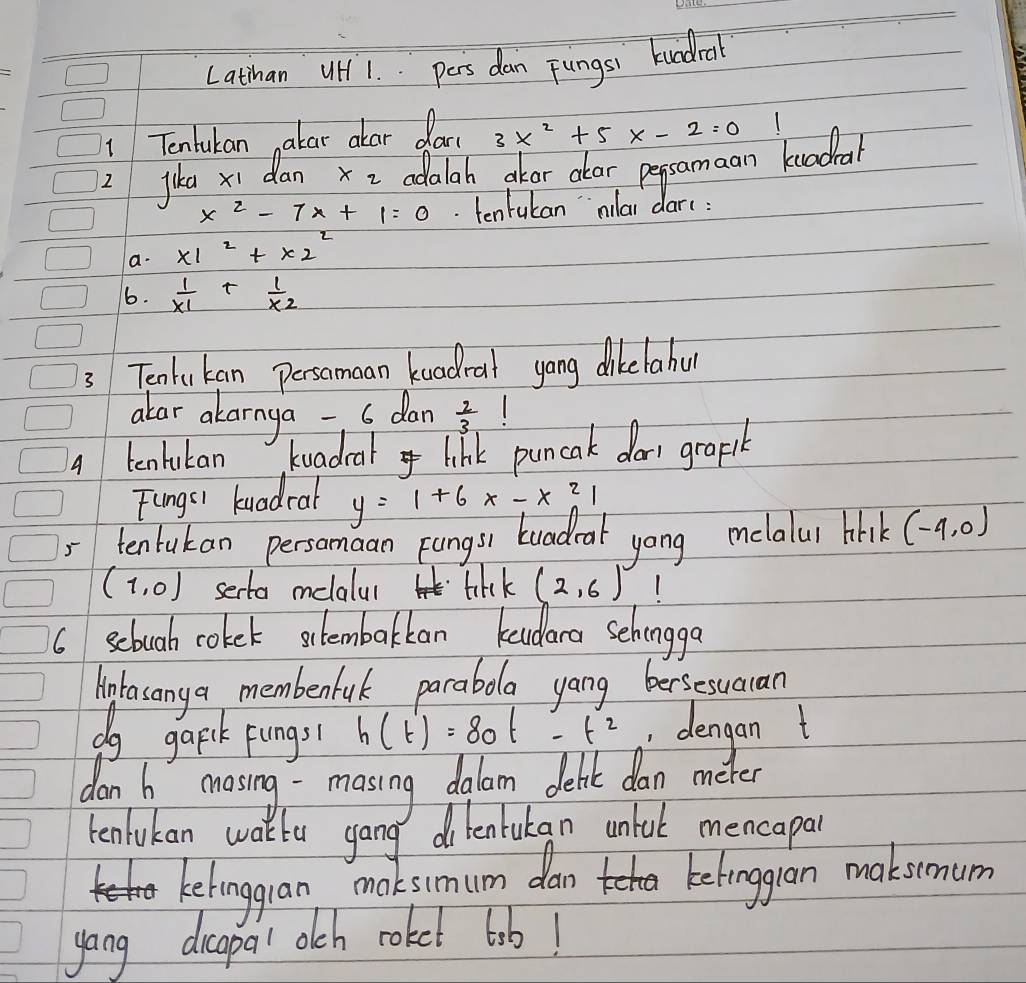 Date.
Latihan UH 1. . pers dan Fungsi kuadrat
1 Tentukan akar akar dari 3x² + 5x - 2 = 0 !
2 jika x1 dan x2 adalah akar akar persamaan kuadrat
x² - 7x + 1 = 0 . tentukan nilai dari :
a. x1² + x2²
b. 1/x1 + 1/x2
3 Tentukan persamaan kuadrat yang diketahui
akar akarnya - 6 dan 2/3 !
4 tentukan kuadrat titik puncak dari grafik
Fungsi kuadrat y = 1 + 6x - x² !
5 tentukan persamaan Fungsi kuadrat yang melalui titik (-4,0)
(1,0) serta melalui titik (2,6) !
6 sebuah roket sitembakkan keudara sehingga
lintasanya membentuk parabola yang bersesuaian
dg gafik Fungsi h(t) = 80t - t², dengan t
dan h masing - masing dalam detik dan meter
tentukan waktu yang ditentukan untuk mencapai
ketinggian maksimum dan ketinggian maksimum
yang dicapai oleh roket tsb !